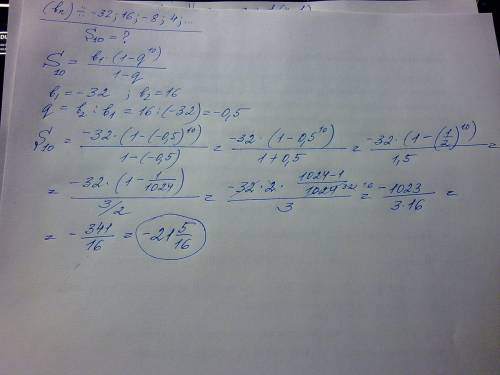 (bn) ÷ -32; 16; -8; 4; ...
S10 = ?
S10 = b1 (1-q^10) / 1-q
b1 = -32 ; b2 = 16
q = b2 : b1 = 16 : (-32) = -0,5
S10 = -32 · (1-(-0,5)^10) / 1-(-0,5) = -32 · (1-0,5^10) / 1+0,5 = -32 · (1-(1/2)^10) / 1,5 =
= -32 · (1- 1/1024) / 3/2 = -32 · 2 · 1024-1/1024 / 3 = -1023 / 3·16 =
= - 341/16 = -21 5/16